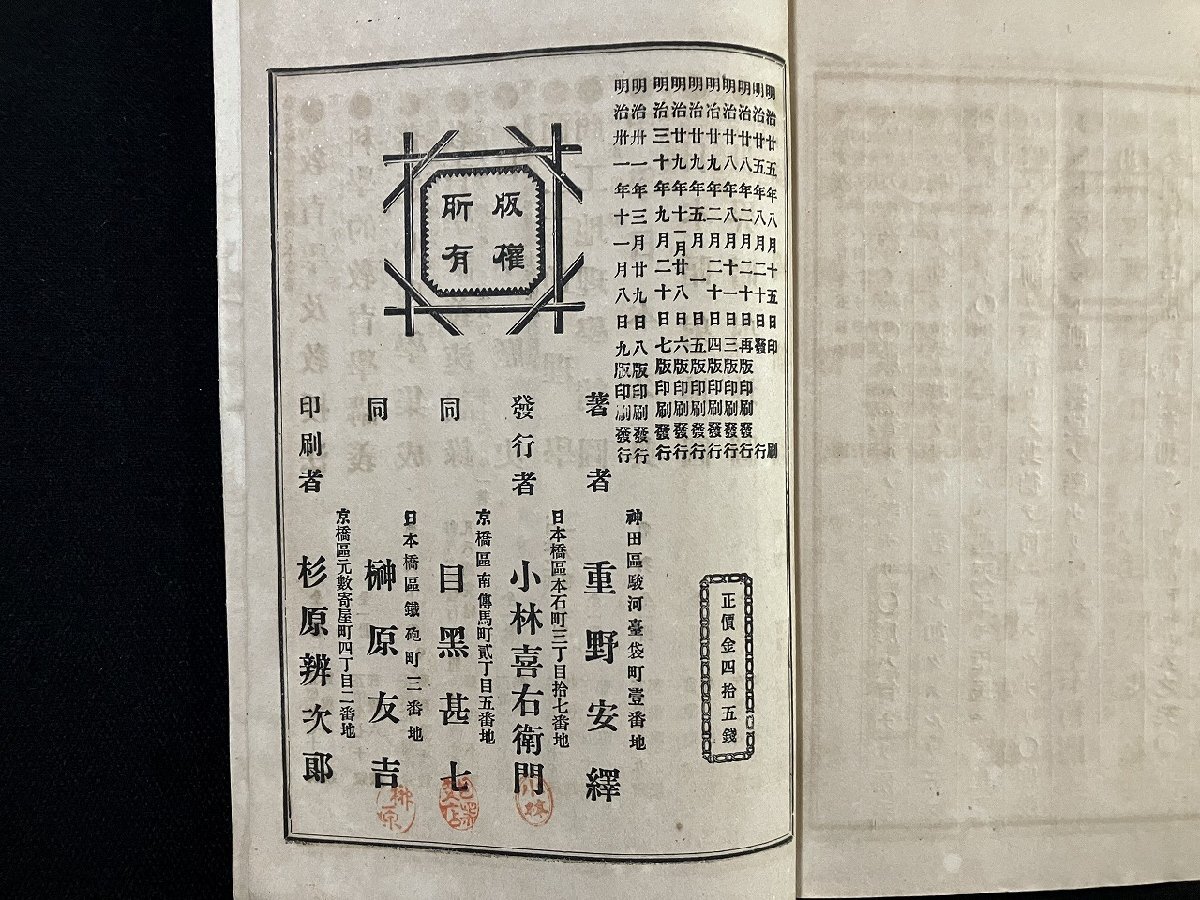 明治廿五年八月十五日印刷
明治廿五年八月二十日發行
明治廿八年二月二十日再版印刷發行
明治廿八年八月十一日三版印刷發行
明治廿九年二月二十日四版印刷發行
明治廿九年五月一日五版印刷發行
明治廿九年十一月廿八日六版印刷發行
明治三十年九月二十日七版印刷發行
明治卅一年三月廿九日八版印刷發行
明治卅一年十一月八日九版印刷發行
版權
所有
正價金四拾五錢
神田區駿河臺袋町壹番地
著者 重野安繹
日本橋區本石町三丁目拾七番地
發行者 小林喜右衛門
京橋區南傳馬町貳丁目五番地
同 目黑甚七
日本橋區鐵砲町三番地
同 榊原友吉
京橋區元數寄屋町四丁目二番地
印刷者 杉原辨次郎